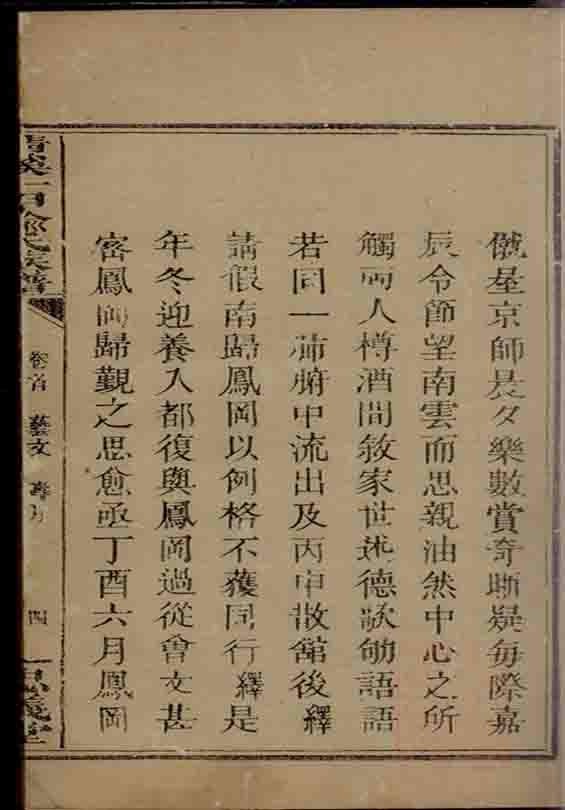 僦屋京師晨夕樂數賞奇晰疑每際嘉
辰令節望南雲而思親油然中心之所
觸兩人樽酒間敘家世述德歌劬語語
若同一肺腑中流出及丙申散舘後繹
請假南歸鳳岡以例格不獲同行繹是
年冬迎養入都復與鳳岡過從會文甚
密鳳岡歸覲之思愈亟丁酉六月鳳岡
卷首 藝文 壽序
四